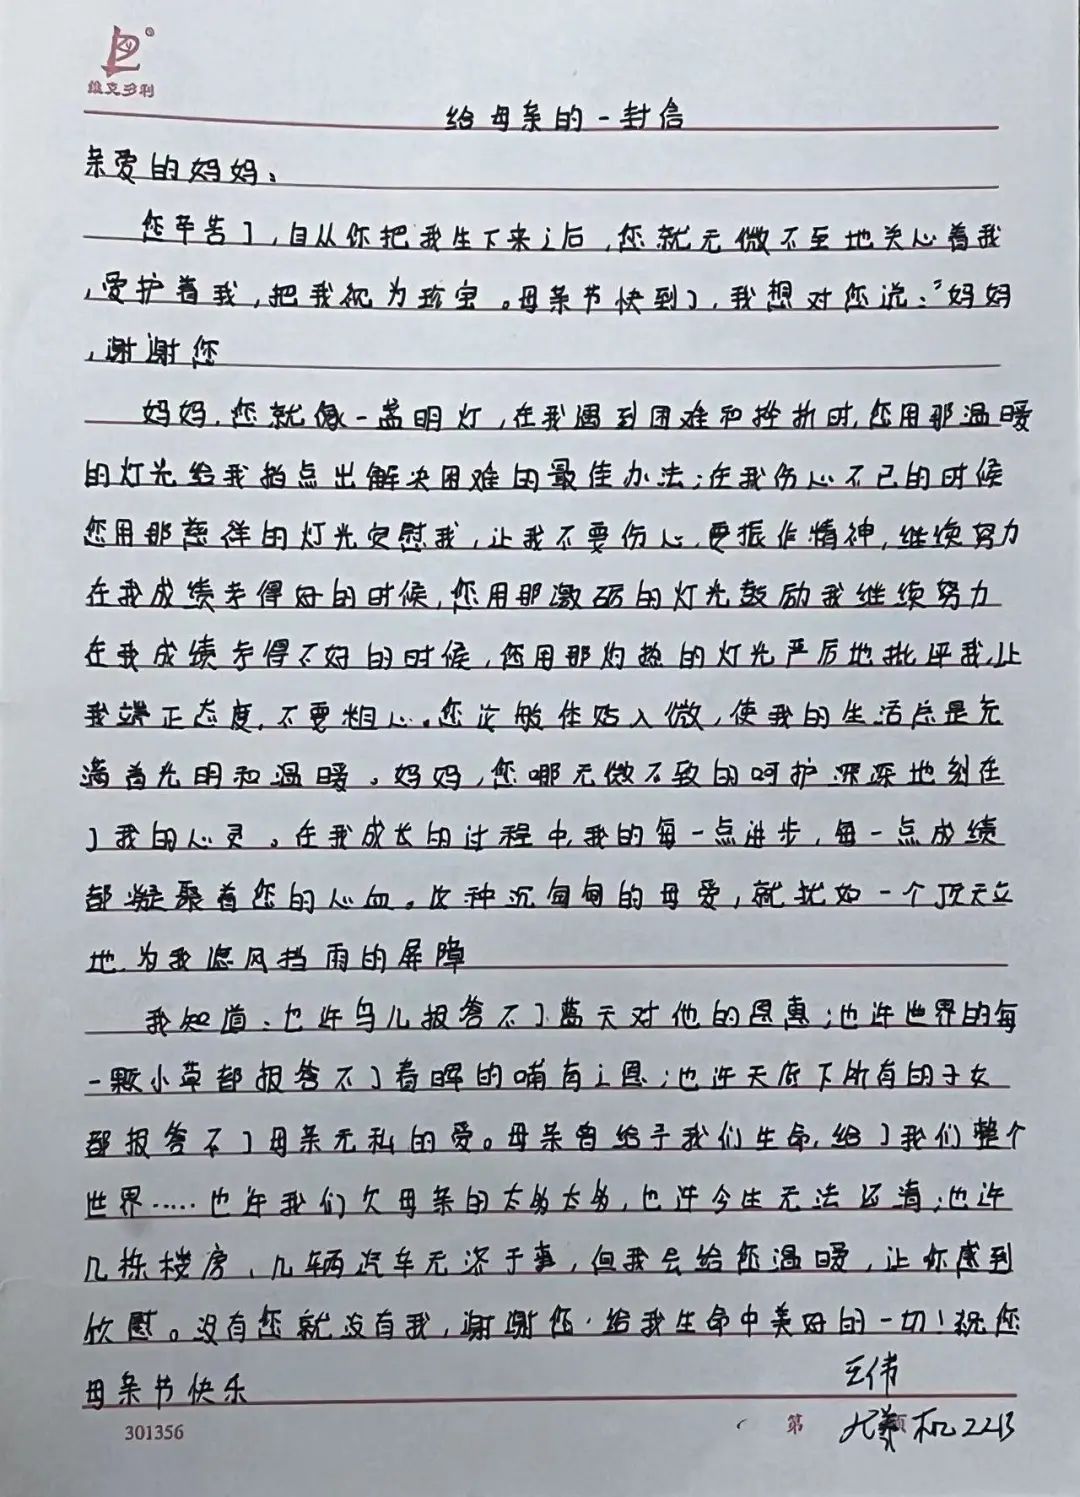 维克多利
给母亲的一封信
亲爱的妈妈：
您辛苦了，自从你把我生下来之后，您就无微不至地关心着我
，爱护着我，把我视为珍宝。母亲节快到了，我想对您说：“妈妈
，谢谢您
妈妈，您就像一盏明灯，在我遇到困难和挫折时，您用那温暖
的灯光给我指点出解决困难的最佳办法；在我伤心不已的时候
您用那慈祥的灯光安慰我，让我不要伤心，要振作精神，继续努力
在我成绩考得好的时候，您用那激励的灯光鼓励我继续努力
在我成绩考得不好的时候，您用那灼热的灯光严厉地批评我，让
我端正态度，不要粗心。您这般体贴入微，使我的生活总是充
满着光明和温暖。妈妈，您哪无微不致的呵护深深地刻在
了我的心灵。在我成长的过程中，我的每一点进步，每一点成绩
都凝聚着您的心血。这种沉甸甸的母爱，就犹如一个顶天立
地，为我遮风挡雨的屏障
我知道：也许鸟儿报答不了蓝天对他的恩惠；也许世界的每
一颗小草都报答不了春晖的哺育之恩；也许天底下所有的子女
都报答不了母亲无私的爱。母亲曾给予我们生命，给了我们整个
世界……也许我们欠母亲的太多太多，也许今生无法还清；也许
几栋楼房、几辆汽车无济于事，但我会给您温暖，让你感到
欣慰。没有您就没有我，谢谢您·给我生命中美好的一切！祝您
母亲节快乐
王伟
301356
第 页
机2213